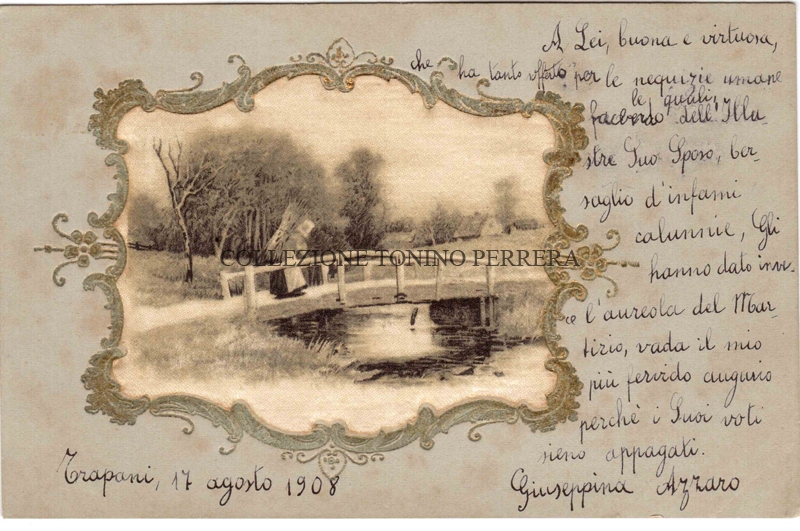 A Lei, buona e virtuosa,
che ha tanto offerto per le nequizie umane
le quali,
facendo dell'Illu-
stre Suo Sposo, ber-
saglio d'infami
calunnie, Gli
hanno dato invi-
ce l'aureola del Mar-
tirio, vada il mio
più fervido augurio
perchè i Suoi voti
sieno appagati.
Giuseppina Azzaro
Trapani, 17 agosto 1908
COLLEZIONE TONINO PERRERA